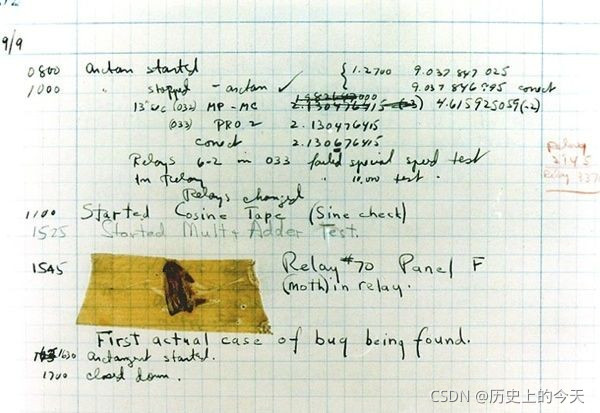 9/9
0800 arctan started { 1.2700 9.037 847 025
1000 " stopped - arctan ✓ 9.037 846 995 correct
13"uc (032) MP - MC 2.130476415 (-3) 4.615925059(-2)
(033) PRO 2 2.130476415
correct 2.130676415
Relays 6-2 in 033 failed special speed test
In Relay " 10,000 test.
Relay
2145
Relay 3370
Relays changed
1100 Started Cosine Tape (Sine check)
1525 Started Mult+Adder Test.
1545 Relay #70 Panel F
(moth) in relay.
First actual case of bug being found.
1630 arctangent started.
1700 closed down.
CSDN @历史上的今天